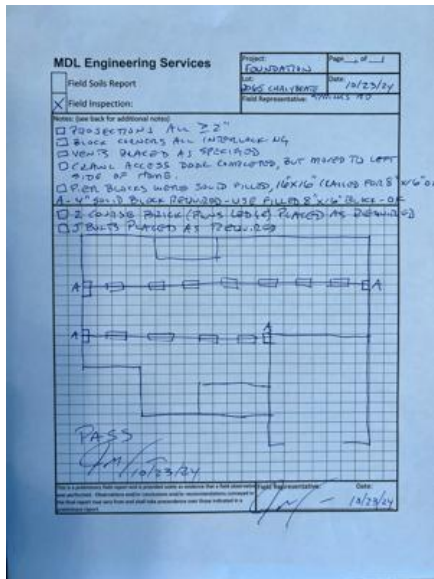 MDL Engineering Services
Project: FOUNDATION
Page of
Field Soils Report
Lot: 2065 CHALYBEATE
Date: 10/23/24
X Field Inspection:
Field Representative:
Notes: (see back for additional notes)
PROJECTIONS ALL ≥ 2"
BLOCK CORNERS ALL INTERLOCKING
VENTS PLACED AS SPECIFIED
CRAWL ACCESS DOOR COMPLETED, BUT MOVED TO LEFT
SIDE OF HOME.
PIER BLOCKS WERE SOLID FILLED, 16X16" (CALLED FOR 8"X16"
A - 4" SOLID BLOCK REQUIRED - USE FILLED 8"X16" BLOCK - OK
2 COURSE BRICK (PLUS LEDGE) PLACED AS REQUIRED
J BOLTS PLACED AS REQUIRED
A A
A A
PASS
10/23/24
This is a preliminary field report and is provided solely as evidence that a field observation
was performed. Observations and/or conclusions and/or recommendations conveyed in
the final report may vary from and shall take precedence over those indicated in a
preliminary report.
Field Representative:
Date:
10/23/24